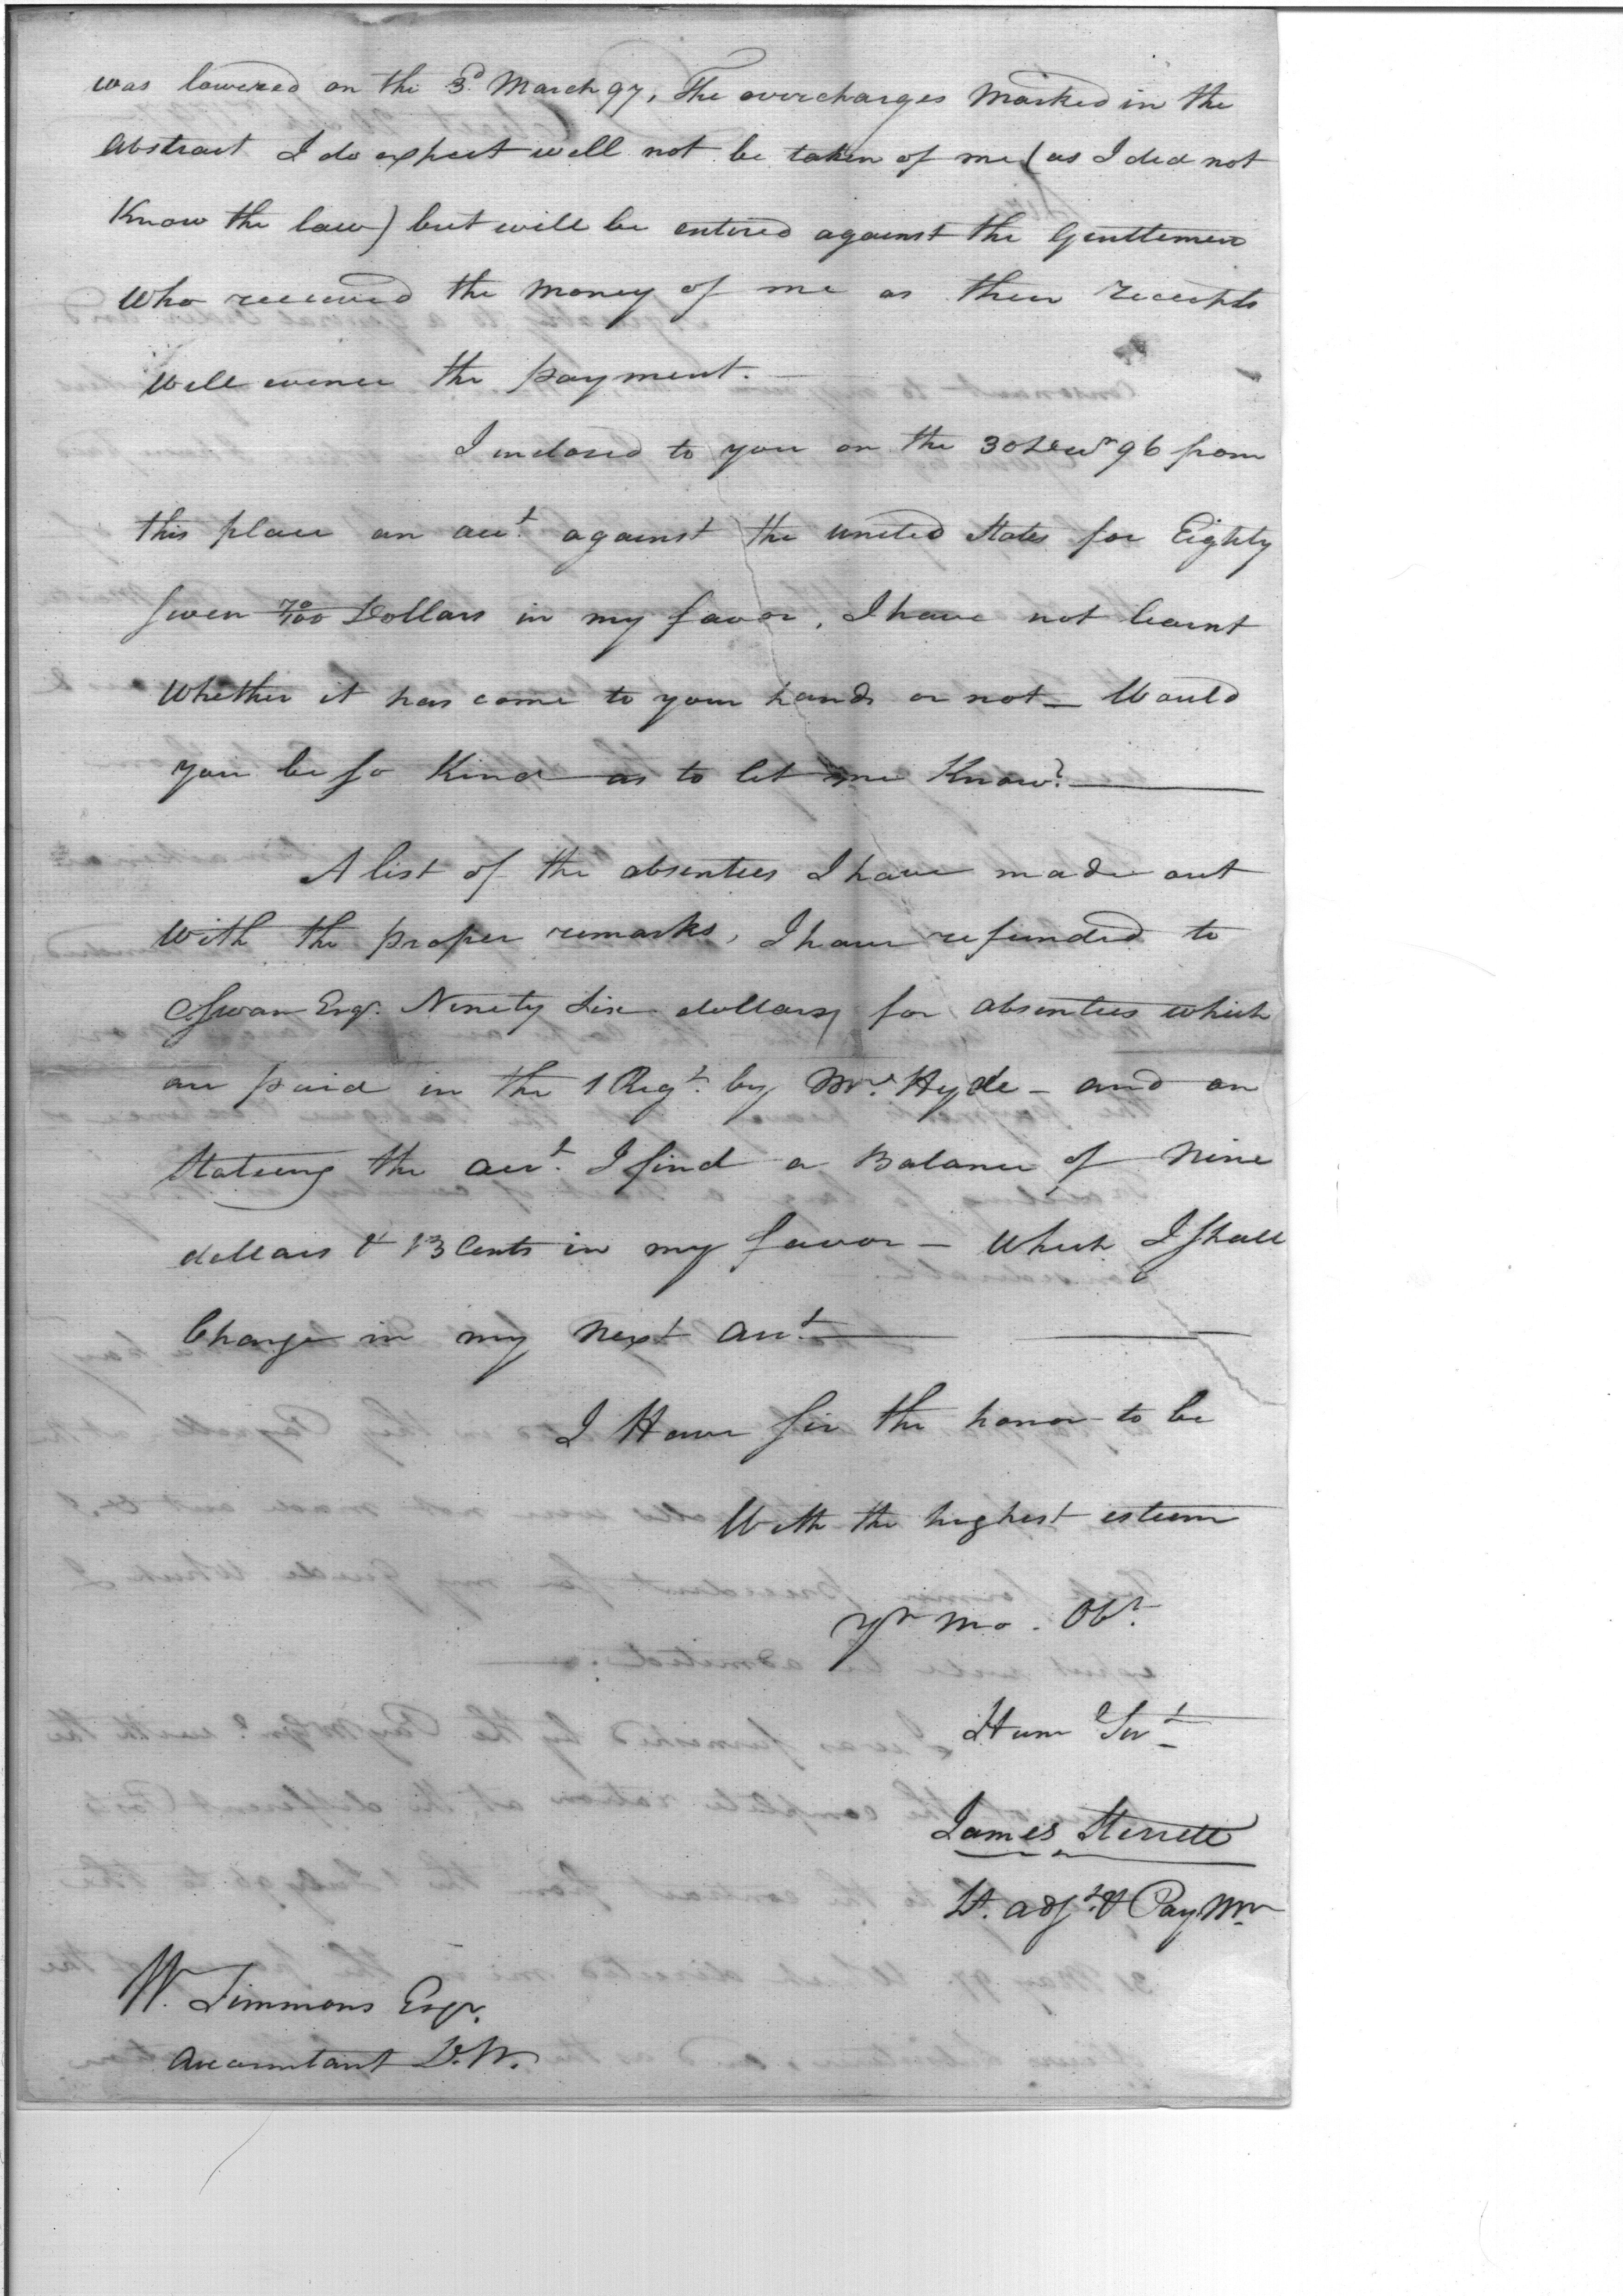 was lowered on the 3d. March 97, The overcharges Marked in the
abstract I do expect will not be taken of me (as I did not
Know the law) but will be entered against the Gentlemen
who received the money of me as their receipts
will evince the payment.
I inclosed to you on the 30 Decr 96 from
this place an acct. against the united States for Eighty
seven 70/100 Dollars in my favor, I have not learnt
whether it has come to your hands or not — Would
you be so Kind as to let me Know?
A list of the absentees I have made out
with the proper remarks, I have refunded to
C Swan Esqr. Ninety Six dollars for absentees which
are paid in the 1 Regt. by Mr. Hyde — and on
Stateing the acct. I find a Balance of Nine
dollars & 13 Cents in my favor — which I shall
Charge in my next acct.
I Have sir the honor to be
With the highest esteem
Yr Mo. Obt.
Hum Svt
James Sterrett
Lt. adjt. & Pay Mr
W. Simmons Esqr.
Accountant D.W.